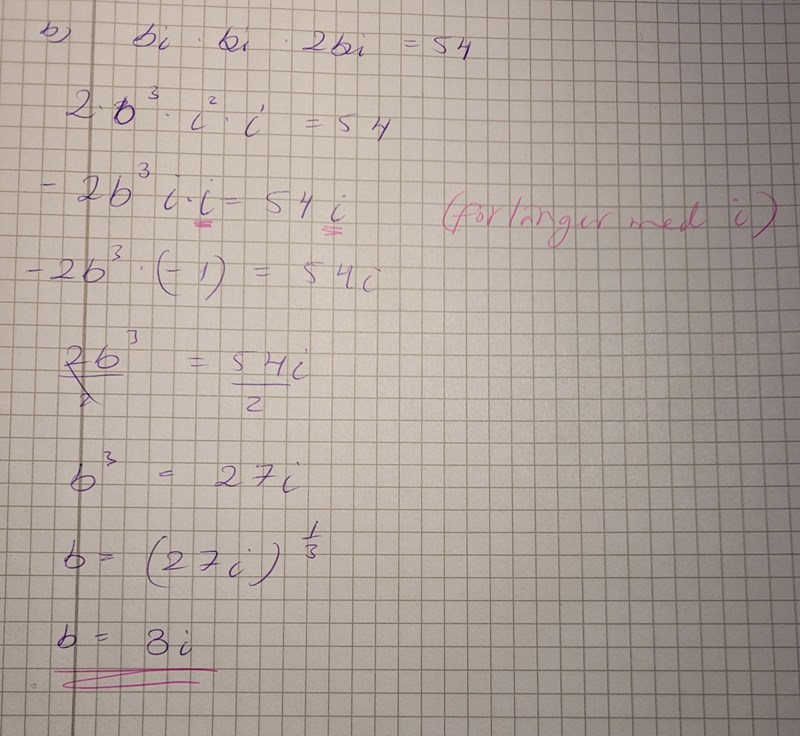 b) bi · bi · 2bi = 54
2 · b³ · i² · i = 54
- 2b³ i · i = 54 i (forlänger med i)
- 2b³ · (-1) = 54i
2b³/2 = 54i/2
b³ = 27i
b = (27i)^1/3
b = 3i